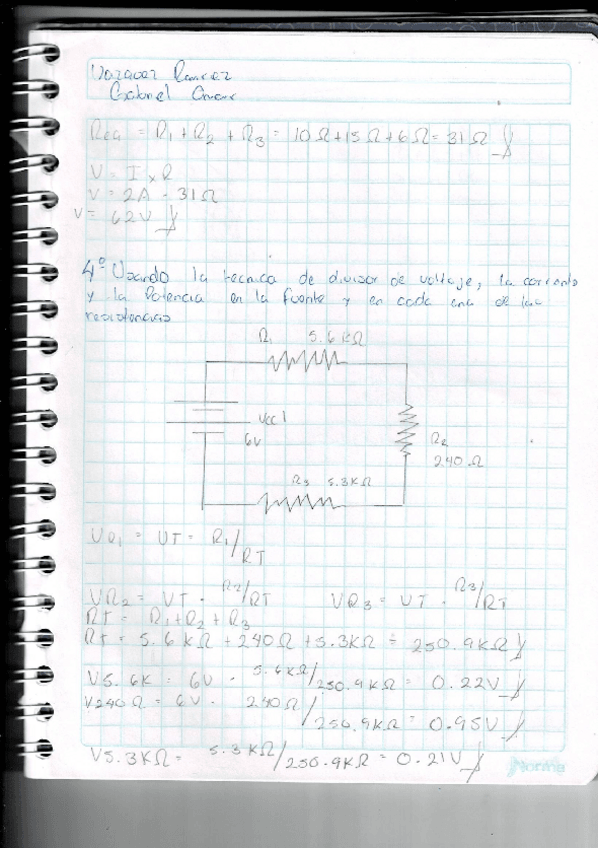 Gabriel Omar
Req = R1 + R2 + R3 = 10 Ω + 15 Ω + 6 Ω = 31 Ω
V = I x R
V = 2A · 31Ω
V = 62V
4° Usando la tecnica de divisor de voltaje, la corriente
y la Potencia en la fuente y en cada una de las
resistencias
R1 5.6 kΩ
Vcc1
6V
R2
240 Ω
R3 5.3KΩ
VR1 = VT = R1/RT
VR2 = VT · R2/RT VR3 = VT · R3/RT
Rt = R1 + R2 + R3
Rt = 5.6 kΩ + 240 Ω + 5.3KΩ = 250.9KΩ
V5.6K = 6V · 5.6KΩ/250.9KΩ = 0.22V
V240Ω = 6V · 240Ω/250.9KΩ = 0.95V
V5.3KΩ = 5.3KΩ/250.9KΩ = 0.21V
Norma